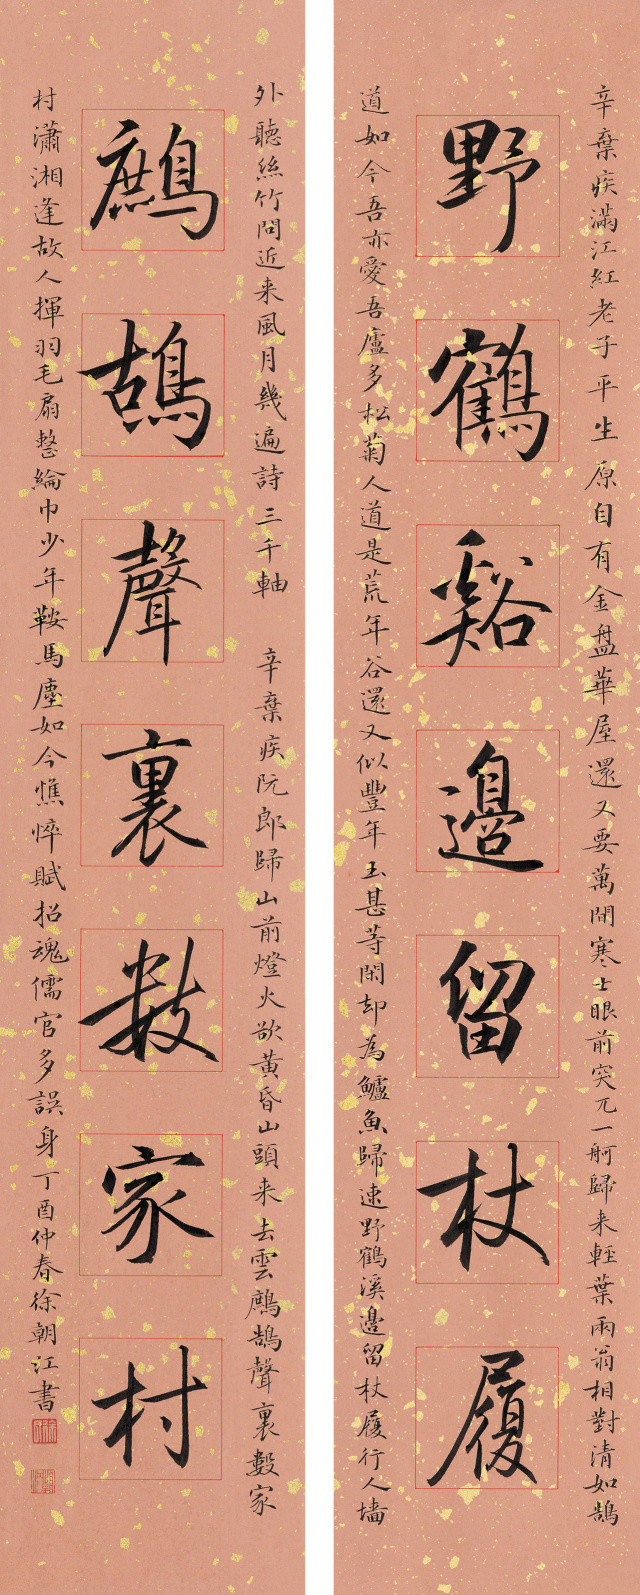 辛棄疾滿江紅老子平生原自有金盤華屋還又要萬間寒士眼前突兀一舸歸来輕葉兩翁相對清如鵠
野鶴谿邊留杖履
道如今吾亦愛吾廬多松菊人道是荒年谷還又似豐年玉甚等閑却為鱸魚歸速野鶴溪邊留杖屨行人墻
外聽絲竹問近来風月幾遍詩三千軸
辛棄疾阮郎歸山前燈火欲黃昏山頭来去雲鷓鴣聲裏數家
鷓鴣聲裏數家村
村瀟湘逢故人揮羽毛扇整綸巾少年鞍馬塵如今憔悴賦招魂儒官多誤身丁酉仲春徐朝江書